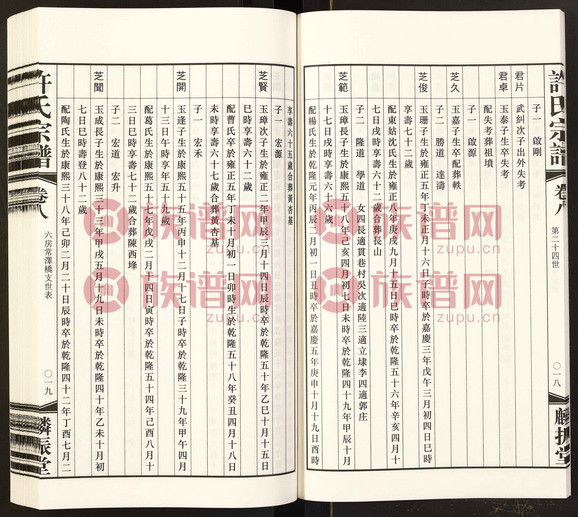 許氏宗譜
卷八
第二十四世
〇一八
麟振堂
子一 啟剛
君片 武糾次子出外失考
君卓 玉泰子生卒失考
配失考葬祖墳
子一 啟源
芝久 玉嘉子生卒配葬軼
子二 勝道 達濤
芝俊 玉珊子生於康熙五十六年丁未正月十六日子時卒於嘉慶三年戊午三月初四日巳時
享壽七十二歲
配東姑沈氏生於雍正八年庚戌九月十五日巳時卒於乾隆五十六年辛亥四月十
七日戌時享壽六十二歲合葬長山
子二 隆道 學道 女四長適貫巷村吳次適陸三適立埭李四適郭庄
芝範 玉璋長子生於康熙五十八年己亥四月初七日未時卒於乾隆四十九年甲辰十月
十六歲
配楊氏生於乾隆元年丙辰二月初一日丑時卒於嘉慶五年庚申十月十九日酉時
享壽六十五歲合葬黃杏基
子一 宏源
芝賢 玉璋次子生於雍正二年甲辰三月十四日辰時卒於乾隆五十年乙巳十月十一日
巳時享壽六十二歲
配曹氏卒於雍正五年丁未十月初一日卯時生於乾隆五十八年癸丑四月十八日
未時享壽六十七歲合葬黃杏基
子一 宏禾
芝開 玉逢子生於康熙五十五年丙申十二月十七日子時卒於乾隆三十九年甲午四月
十三日午時享年五十九歲
配葛氏生於康熙五十七年戊戌二月十四日寅時卒於乾隆五十四年己酉八月十
三日巳時享壽七十二歲合葬陳西埄
子二 宏道 宏升
芝聞 玉成長子生於康熙三十三年甲戌五月十九日未時卒於乾隆四十年乙未十月初
七日巳時壽登八十二歲
配陶氏生於康熙三十八年己卯二月二十日辰時卒於乾隆四十二年丁酉七月二
許氏宗譜
卷八
六房常澤橋支世表
〇一九
麟振堂
族譜网
zupu.cn
族譜网
zupu.cn
族譜网
zupu.cn
族譜网
zupu.cn